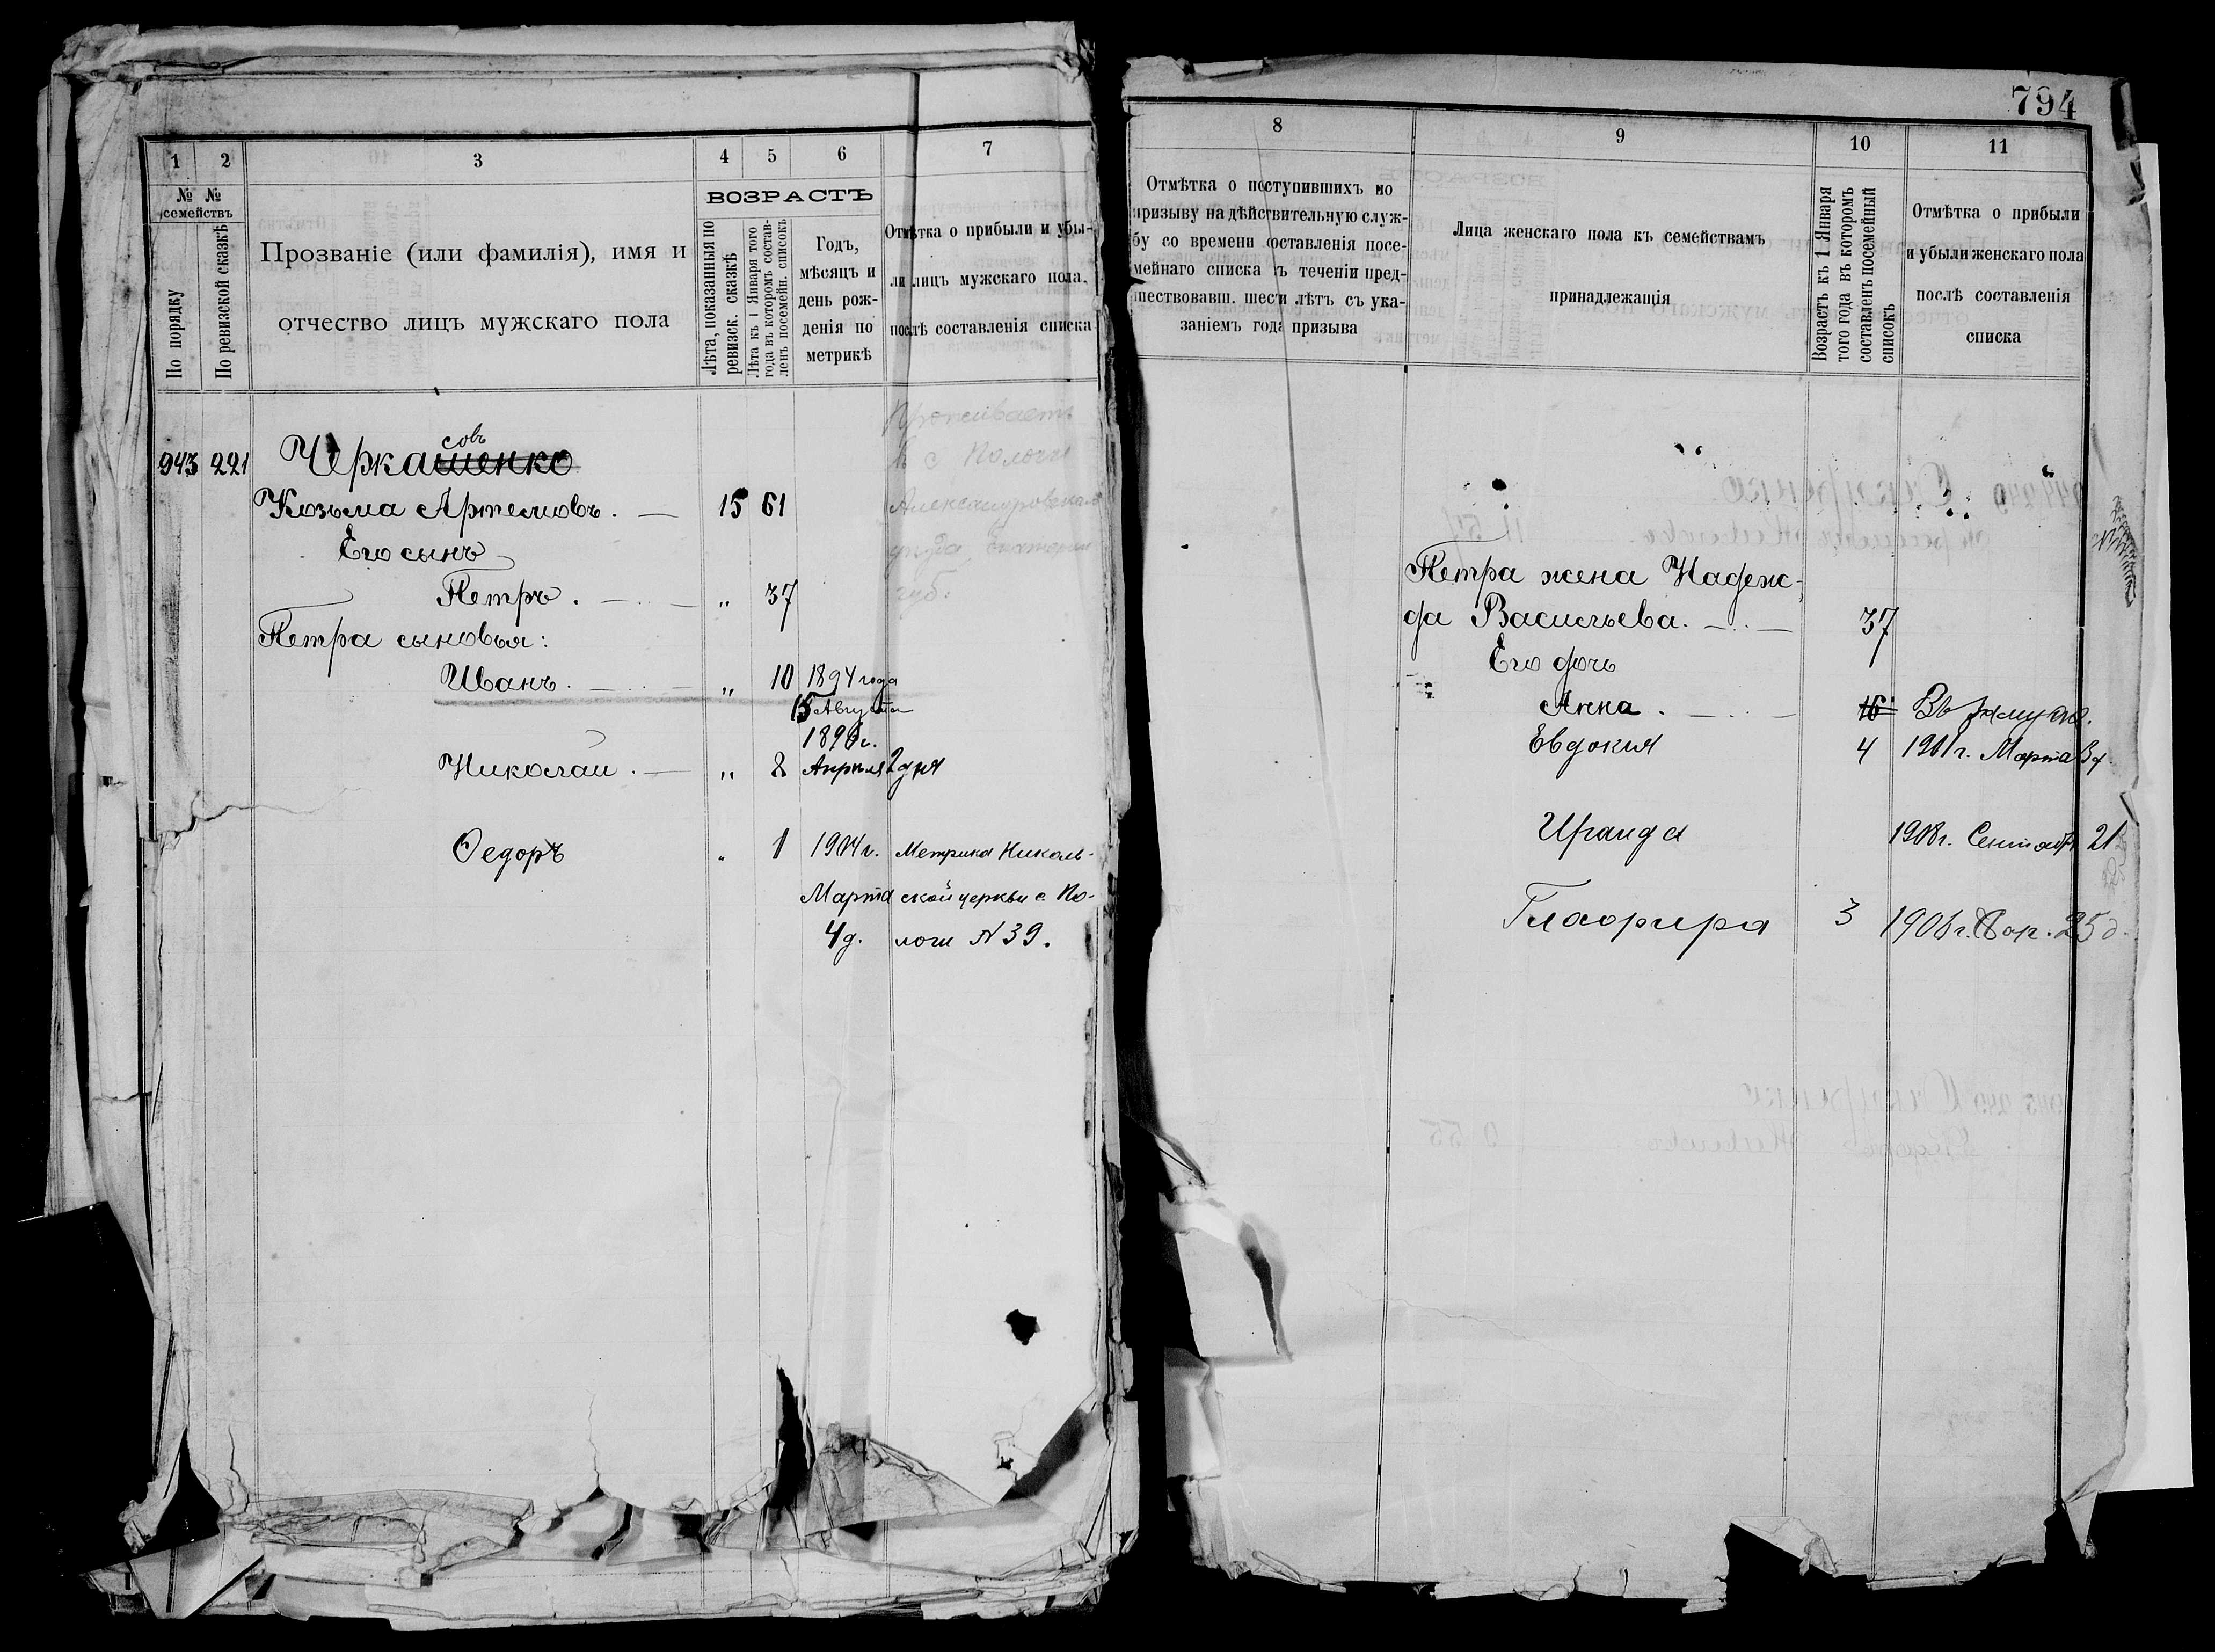 794
1 2 3 4 5 6 7
№ № семействъ
По порядку
По ревизской сказкѣ
Прозваніе (или фамилія), имя и
отчество лицъ мужскаго пола
ВОЗРАСТЪ
Лѣта, показанныя по
ревизск. сказкѣ
Лѣта къ 1 Января того
года въ которомъ состав-
ленъ посемейн. списокъ
Годъ,
мѣсяцъ и
день рож-
денія по
метрикѣ
Отмѣтка о прибыли и убы-
ли лицъ мужскаго пола,
послѣ составленія списка
943 221 Черкашенко
совъ
Проживаетъ
въ с Пологи
Александровскаго
уѣзда Екатерин
губ.
Козьма Артемовъ. — 15 61
Его сынъ
Петръ. — „ 37
Петра сыновья:
Иванъ. — „ 10 1894 года
15 Августа
1896 г.
Николай. — „ 8 Апрѣля 2 дня
Ѳедоръ „ 1 1904 г. Метрика Николь-
Марта ской церкви с. По-
4 д. логи № 39.
8 9 10 11
Отмѣтка о поступившихъ по
призыву на дѣйствительную служ-
бу со времени составленія посе-
мейнаго списка въ теченіи пред-
шествовавш. шести лѣтъ съ ука-
заніемъ года призыва
Лица женскаго пола къ семействамъ
принадлежащія
Возрастъ къ 1 Января
того года въ которомъ
составленъ посемейный
списокъ
Отмѣтка о прибыли
и убыли женскаго пола
послѣ составленія
списка
Петра жена Надеж-
да Васильева. — 37
Его дочь
Анна. — 16 Въ замуж.
Евдокия 4 1901 г. Марта 3 д
Ираида 1908 г. Сентябр 21
Глафира 3 190 г. 25 д.